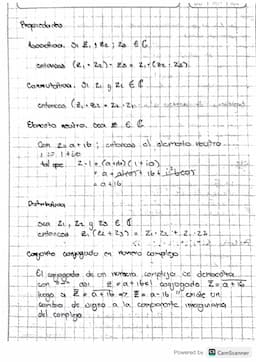 Propiedades
Asociativa. Si Z₁, Z₂, Z₃ ∈ ℂ
entonces (Z₁·Z₂)·Z₃ = Z₁·(Z₂·Z₃)
Conmutativa. Si Z₁ y Z₂ ∈ ℂ
entonces (Z₁·Z₂ = Z₂·Z₁
Elemento neutro. Sea Z ∈ ℂ
Con Z = a+ib; entonces el elemento neutro
1 = 1+i0
tal que Z·1 = (a+ib)(1+i0)
= a+ib
Distributiva
sea Z₁, Z₂ y Z₃ ∈ ℂ
entonces Z₁(Z₂+Z₃) = Z₁·Z₂+Z₁·Z₃
conjugado en numero complejo
El conjugado de un numero complejo se denota
con
luego si Z = a+ib ⇒ Z̄ = a-ib existe un
cambio de signo a la componente imaginaria
del complejo
Powered by CamScanner